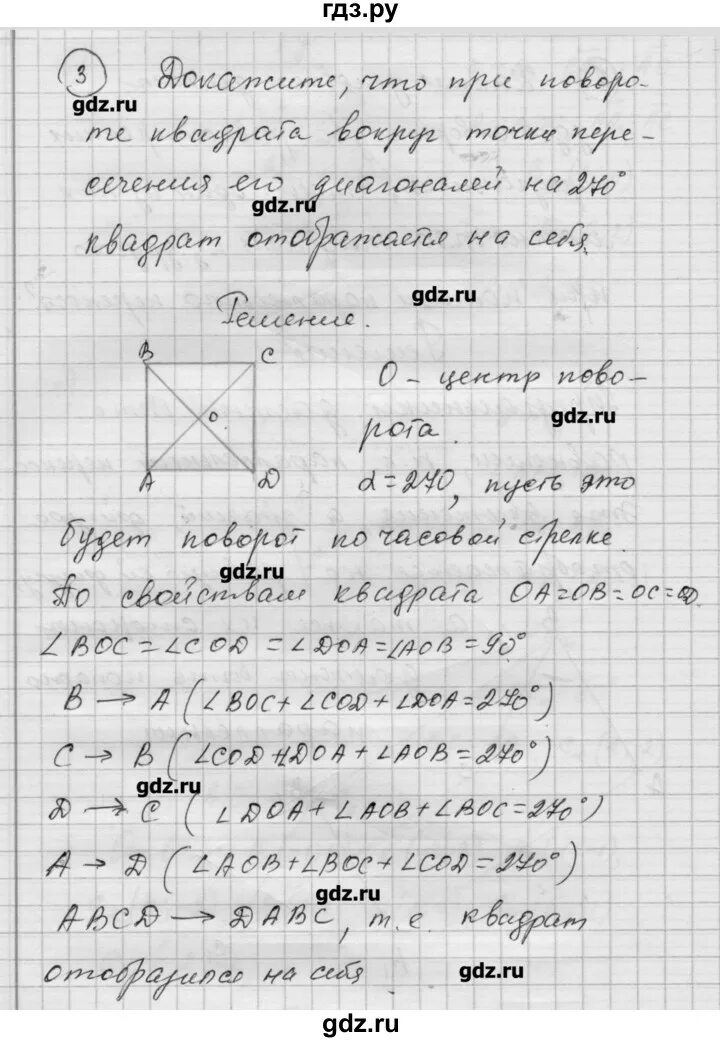 гдз.ру
3 Докажите, что при поворо-
gdz.ru
те квадрата вокруг точки пере-
сечения его диагоналей на 270°
gdz.ru
квадрат отображается на себя.
gdz.ru
Решение.
B C
O
A D
O - центр пово-
gdz.ru
рота.
α=270, пусть это
будет поворот по часовой стрелке.
gdz.ru
По свойствам квадрата OA=OB=OC=OD.
∠BOC=∠COD=∠DOA=∠AOB=90°
B → A (∠BOC+∠COD+∠DOA=270°)
C → B (∠COD+∠DOA+∠AOB=270°)
gdz.ru
D → C (∠DOA+∠AOB+∠BOC=270°)
A → D (∠AOB+∠BOC+∠COD=270°)
gdz.ru
ABCD → DABC, т.е. квадрат
отобразился на себя
gdz.ru
gdz.ru